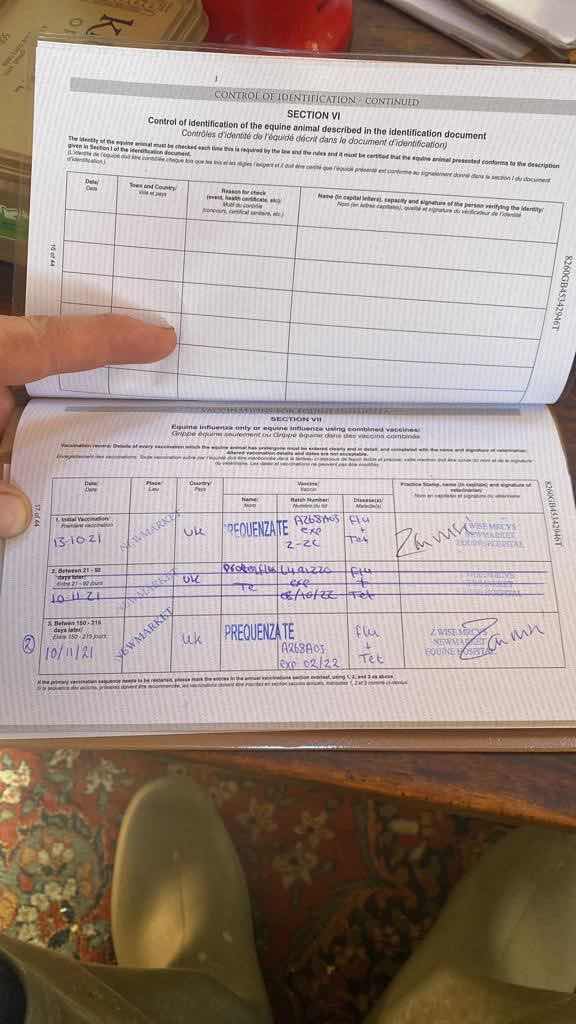 CONTROL OF IDENTIFICATION - CONTINUED
SECTION VI
Control of identification of the equine animal described in the identification document
Contrôles d'identité de l'équidé décrit dans le document d'identification)
The identity of the equine animal must be checked each time this is required by the law and the rules and it must be certified that the equine animal presented conforms to the description
given in Section I of the identification document.
(L'identité de l'équidé doit être contrôlée chaque fois que les lois et les règles l'exigent et il doit être certifié que l'équidé présenté est conforme au signalement donné dans la section I du document
d'identification.)
Date/
Date
Town and Country/
Ville et pays
Reason for check
(event, health certificate, etc)/
Motif du contrôle
(concours, certificat sanitaire, etc.)
Name (in capital letters), capacity and signature of the person verifying the identity/
Nom (en lettres capitales), qualité et signature du vérificateur de l'identité
16 of 44
8260GB45342946T
SECTION VII
Equine influenza only or equine influenza using combined vaccines/
Grippe équine seulement ou Grippe équine dans des vaccins combinés
Vaccination record: Details of every vaccination which the equine animal has undergone must be entered clearly and in detail, and completed with the name and signature of veterinarian/
Altered vaccination details and dates are not acceptable.
Date/
Date
Place/
Lieu
Country/
Pays
Vaccine/
Vaccin
Name/
Nom
Batch Number/
Numéro du lot
Disease(s)/
Maladie(s)
Practice Stamp, name (in capitals) and signature of
veterinarian/
Nom en capitales et signature du vétérinaire
17 of 44
8260GB45342946T
1. Initial Vaccination/
Première vaccination
13-10-21
NEWMARKET
UK
PREQUENZA TE
A268A03
exp
2-22
Flu
+
Tet
Z WISE MRCVS
NEWMARKET
EQUINE HOSPITAL
2. Between 21 - 92
days later/
Entre 21 - 92 jours
10-11-21
NEWMARKET
UK
Proteqflu
Te
exp
08/10/22
Flu
+
Tet
3. Between 150 - 215
days later/
Entre 150 - 215 jours
②
10/11/21
NEWMARKET
UK
PREQUENZA TE
A268A03
exp 02/22
Flu
+
Tet
Z WISE MRCVS
NEWMARKET
EQUINE HOSPITAL
If the primary vaccination sequence needs to be restarted, please mark the entries in the annual vaccinations section overleaf, using 1, 2, and 3 as above.